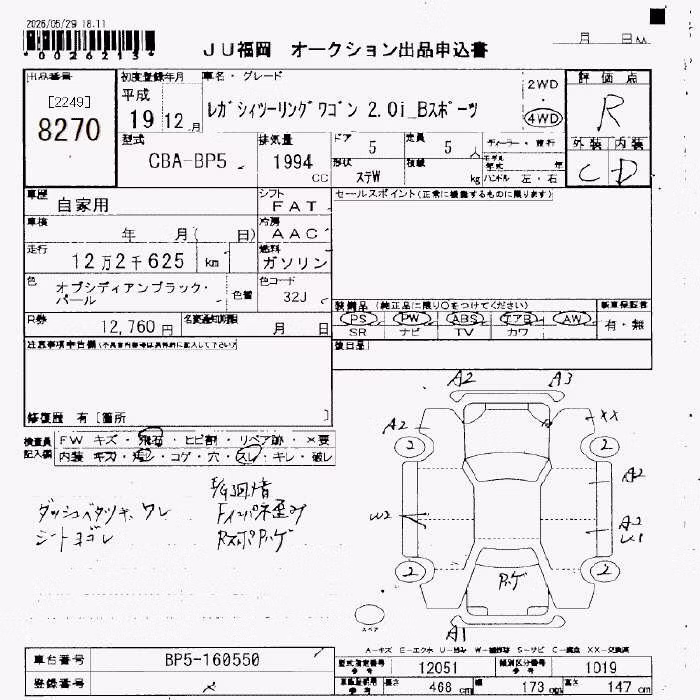 2026/05/29 16.11
0026213
JU福岡 オークション出品申込書
月 日
出品番号
[2249]
8270
初度登録年月
平成
19 12 月
車名・グレード
レガシィツーリングワゴン 2.0i_Bスポーツ
2WD
4WD
評価点
R
外装 内装
C D
型式
CBA-BP5
排気量
1994
CC
ドア
5
定員
5 人
形状
ステW
積載
kg
ディーラー・並行
モデル年式 年
ハンドル 左・右
車歴
自家用
シフト
FAT
セールスポイント(正常に機能するものに限ります)
車検
年 月( 日)
冷房
AAC
走行
12万2千625 km
燃料
ガソリン
色
オブシディアンブラック・
パール
色替
色コード
32J
装備品 (純正品に限り○をつけてください)
PS PW ABS エアB AW
SR ナビ TV カワ
新車保証書
有・無
R券
12,760 円
名変通知期限
月 日
後日品
注意事項申告欄(不具合内容等は具体的に記入して下さい)
修復歴 有 [箇所 ]
検査員
記入欄
FW キズ・飛石・ヒビ割・リペア跡・X要
内装 キズ・汚レ・コゲ・穴・スレ・キレ・破レ
ダッシュベタツキ、ワレ
シートヨゴレ
Fインパネ歪み
A2 A3
A2 XX
2 2
A2
W2
A2
2 2
A1
スペア
A-キズ E-エクボ U-凹み W-補修跡 S-サビ C-腐食 XX-交換済
車台番号
BP5-160550
登録番号
型式指定番号
参考
12051
類別区分番号
参考
1019
長さ 468 cm
幅 173 cm
高さ 147 cm